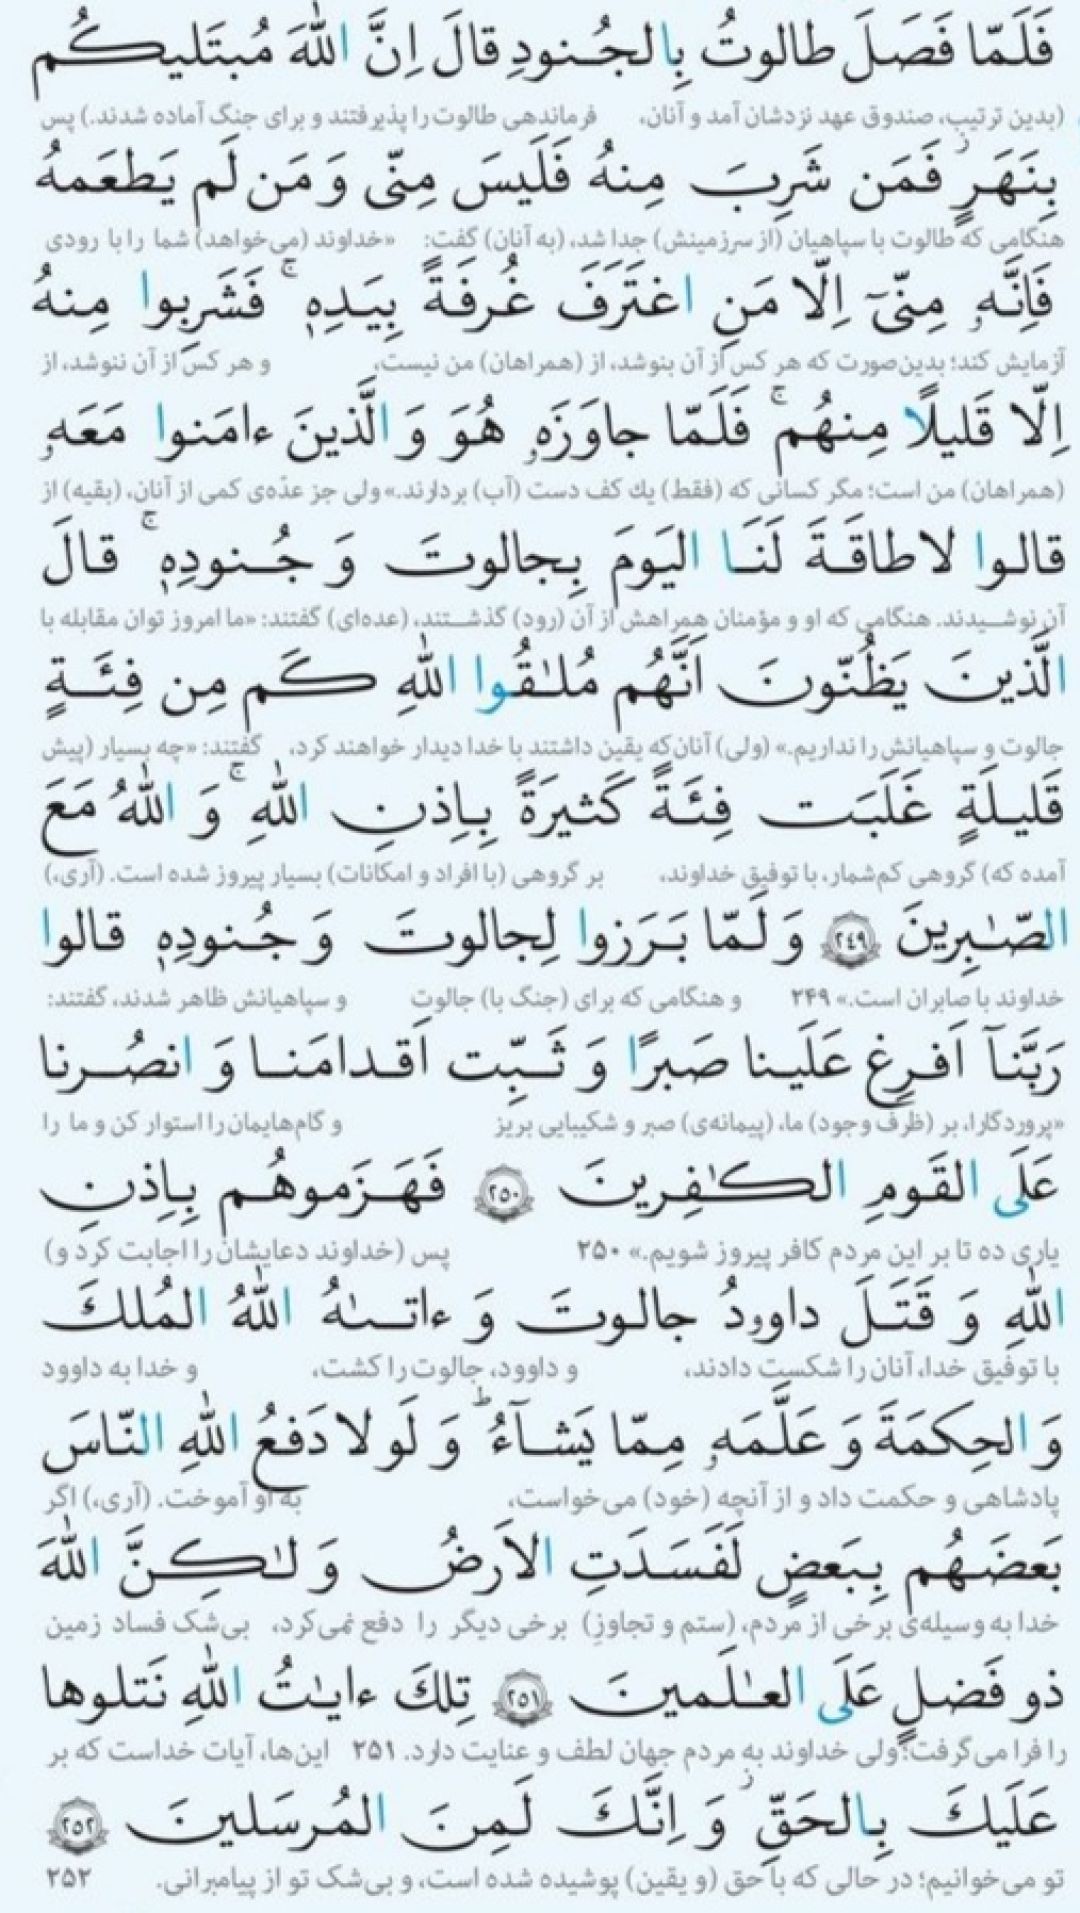 فَلَمّا فَصَلَ طالوتُ بِالجُـنودِ قالَ اِنَّ اللّٰهَ مُبتَليكُم
(بدین ترتیب، صندوق عهد نزدشان آمد و آنان، فرماندهی طالوت را پذیرفتند و برای جنگ آماده شدند.) پس
بِنَهَرٍ ۫ فَمَن شَرِبَ مِنهُ فَلَیسَ مِنّی وَ مَن لَم یَطعَمهُ
هنگامی که طالوت با سپاهیان (از سرزمینش) جدا شد، (به آنان) گفت: «خداوند (می‌خواهد) شما را با رودی
فَاِنَّهٗ مِنّیٓ اِلّا مَنِ اغتَرَفَ غُرفَةً بِیَدِهٖ ۚ فَشَرِبوا مِنهُ
آزمایش کند؛ بدین‌صورت که هر کس از آن بنوشد، از (همراهان) من نیست، و هر کس از آن ننوشد، از
اِلّا قَلیلًا مِنهُم ۚ فَلَمّا جاوَزَهٗ هُوَ وَ الَّذینَ ءامَنوا مَعَهٗ
(همراهان) من است؛ مگر کسانی که (فقط) یك کف دست (آب) بردارند.» ولی جز عدّه‌ی کمی از آنان، (بقیه) از
قالوا لا طاقَةَ لَنَا الیَومَ بِجالوتَ وَ جُـنودِهٖ ۚ قالَ
آن نوشـیدند. هنگامی که او و مؤمنان همراهش از آن (رود) گذشـتند، (عده‌ای) گفتند: «ما امروز توان مقابله با
الَّذینَ یَظُنّونَ اَنَّهُم مُلٰـقُوا اللّٰهِ کَم مِن فِئَـةٍ
جالوت و سپاهیانش را نداریم.» (ولی) آنان‌که یقین داشتند با خدا دیدار خواهند کرد، گفتند: «چه بسیار (پیش
قَلیـلَةٍ غَلَبَت فِئَـةً کَثیرَةً بِـاِذنِ اللّٰهِ ۚ وَ اللّٰهُ مَعَ
آمده که) گروهی کم‌شمار، با توفیق خداوند، بر گروهی (با افراد و امکانات) بسیار پیروز شده است. (آری،)
الصّٰـبِرینَ ٢٤٩ وَ لَـمّا بَـرَزوا لِجالوتَ وَ جُـنودِهٖ قالوا
خداوند با صابران است.» ۲۴۹ و هنگامی که برای (جنگ با) جالوت و سپاهیانش ظاهر شدند، گفتند:
رَبَّنآ اَفـرِغ عَلَیـنا صَبرًا وَ ثَـبِّت اَقـدامَنـا وَ انصُـرنا
«پروردگارا، بر (ظرف وجود) ما، (پیمانه‌ی) صبر و شکیبایی بریز و گام‌هایمان را استوار کن و ما را
عَلَی القَومِ الکٰـفِرینَ ٢٥٠ فَهَـزَموهُـم بِـاِذنِ
یاری ده تا بر این مردم کافر پیروز شویم.» ۲۵۰ پس (خداوند دعایشان را اجابت کرد و)
اللّٰهِ وَ قَتَـلَ داوٗدُ جالـوتَ وَ ءاتـىٰهُ اللّٰهُ المُلكَ
با توفیق خدا، آنان را شکست دادند، و داوود، جالوت را کشت، و خدا به داوود
وَ الحِکمَةَ وَ عَلَّمَهٗ مِمّا یَشـآءُ ؕ وَ لَو لا دَفعُ اللّٰهِ النّاسَ
پادشاهی و حکمت داد و از آنچه (خود) می‌خواست، به او آموخت. (آری،) اگر
بَعضَـهُم بِبَعضٍ لَفَسَـدَتِ الاَرضُ وَ لٰـکِـنَّ اللّٰهَ
خدا به وسیله‌ی برخی از مردم، (ستم و تجاوزِ) برخی دیگر را دفع نمی‌کرد، بی‌شک فساد زمین
ذو فَضـلٍ عَلَی العٰـلَمینَ ٢٥١ تِلكَ ءایـٰتُ اللّٰهِ نَتلوها
را فرا می‌گرفت؛ ولی خداوند به مردم جهان لطف و عنایت دارد. ۲۵۱ این‌ها، آیات خداست که بر
عَلَیكَ بِـالحَقِّ ۚ وَ اِنَّكَ لَـمِنَ المُرسَلینَ ٢٥٢
تو می‌خوانیم؛ در حالی که با حق (و یقین) پوشیده شده است، و بی‌شک تو از پیامبرانی. ۲۵۲